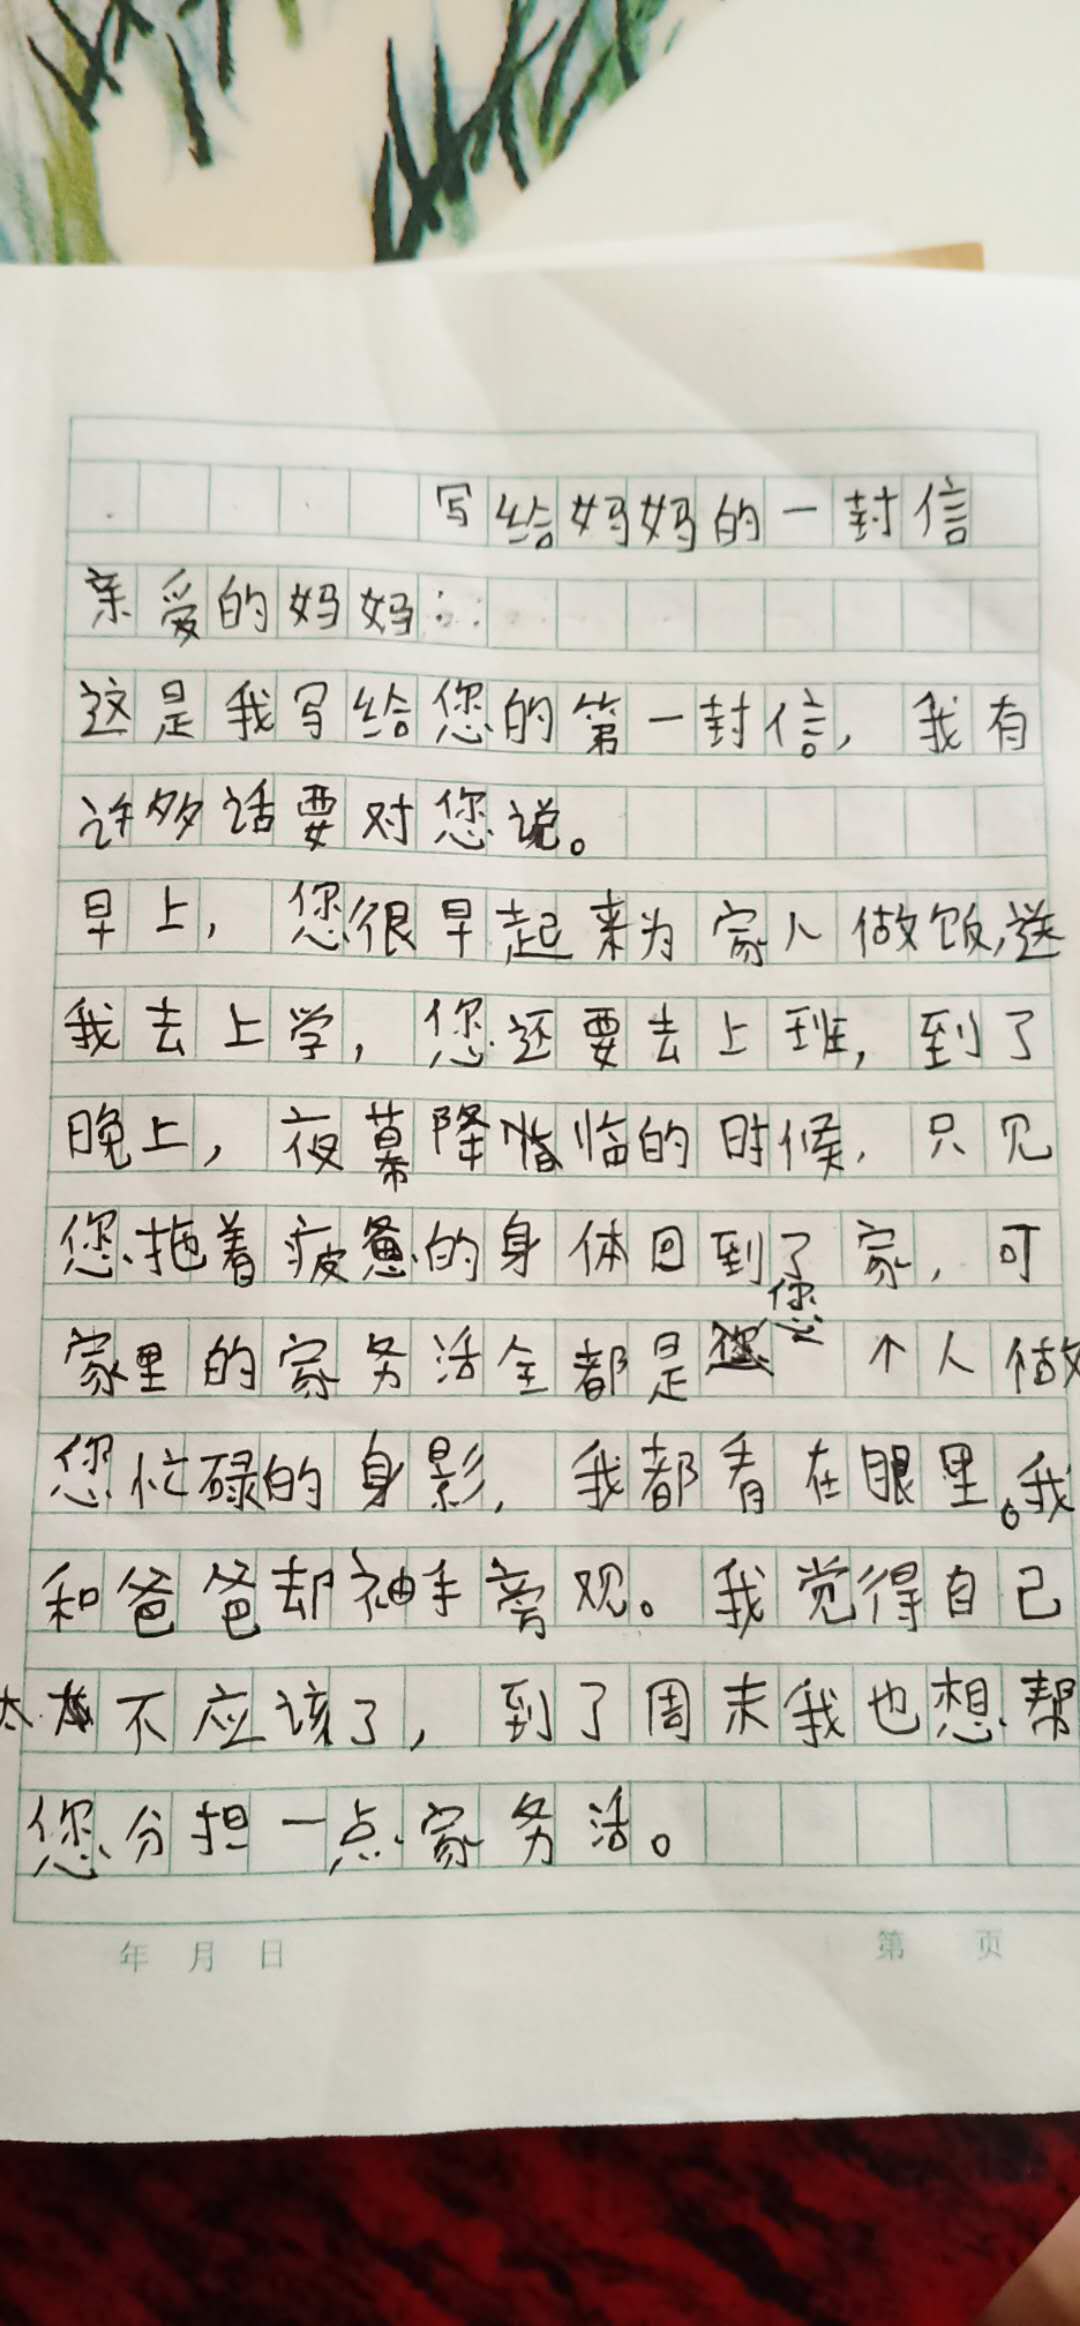 写给妈妈的一封信
亲爱的妈妈：
这是我写给您的第一封信，我有
许多话要对您说。
早上，您很早起来为家人做饭，送
我去上学，您还要去上班，到了
晚上，夜幕降临的时候，只见
您拖着疲惫的身体回到了家，可
家里的家务活全都是您个人做
您忙碌的身影，我都看在眼里。我
和爸爸却袖手旁观。我觉得自己
太不应该了，到了周末我也想帮
您分担一点家务活。
年 月 日 第 页